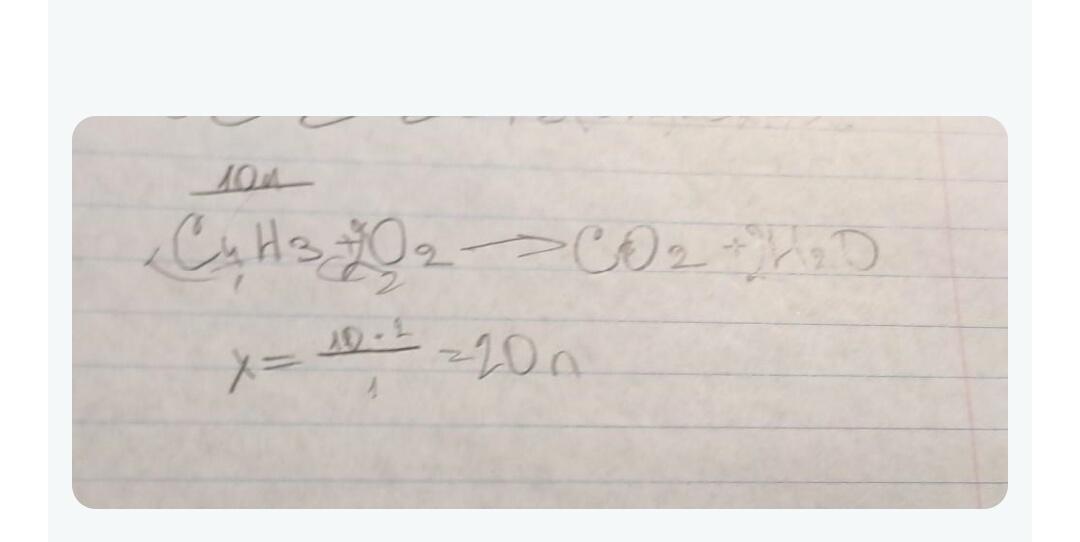 10л
C4H3 + 2O2 → CO2 + 2H2O
2
x = 10 · 2 / 1 = 20 л